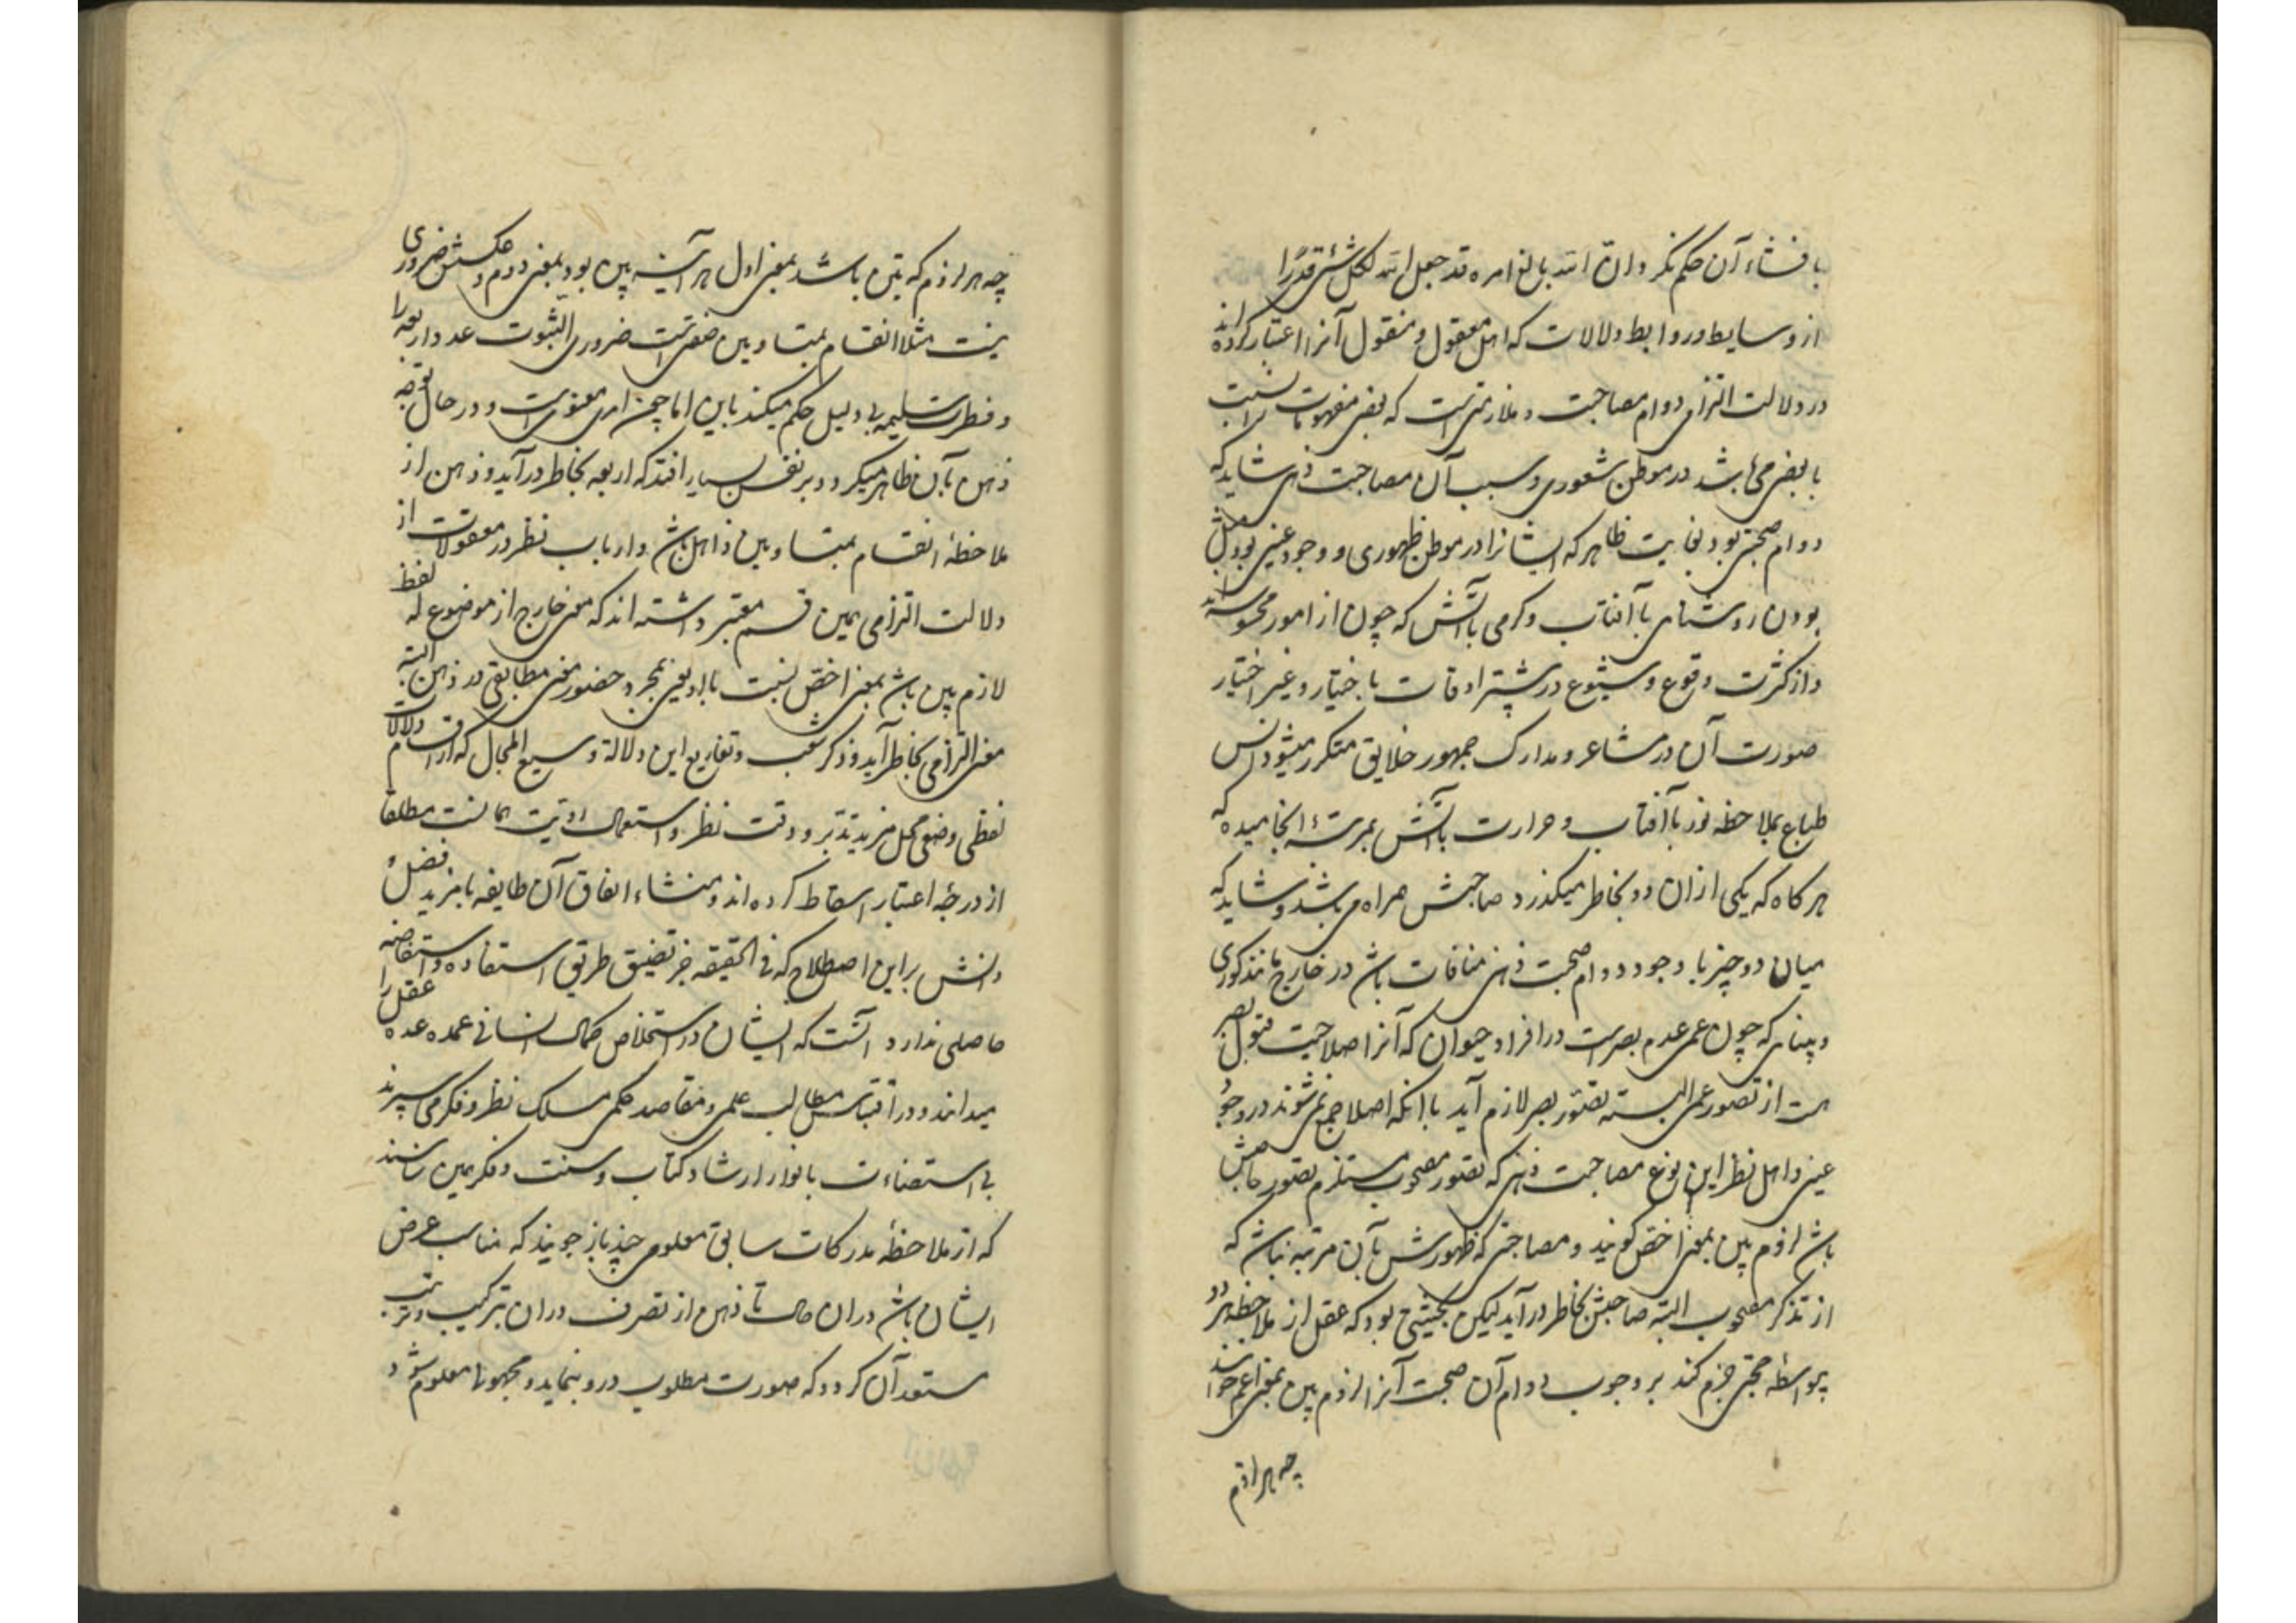 بافشاء آن حکم نکرد و ان الله بالغ امره قد جعل الله لکل شیٔ قدرا
از وسایط و روابط دلالات که اهل معقول و منقول آنرا اعتبار کرده اند
در دلالت التزامی دوام مصاحبت و ملازمتی است که بعضی مفهومات را نسبت
با بعضی می باشد در موطن شعوری و سبب آن مصاحبت ذهنی شاید که
دوام صحبتی بود بغایت ظاهر که ایشانرا در موطن ظهوری و وجود عینی بود مثل
بودن روشنای با آفتاب و کرمی باآتش که چون از امور محسوسه اند
و از کثرت وقوع و شیوع در بیشتر اوقات با ختیار و غیر اختیار
صورت آن در مشاعر و مدارک جمهور خلایق متکرر میشود انس
طباع بملاحظه نور باآفتاب و حرارت باآتش بمرتبهٔ انجامیده که
هر کاه که یکی ازان دو بخاطر میکذرد صاحبش همراه می باشد و شاید که
میان دو چیز با وجود دوام صحبت ذهنی منافات باشد در خارج مانند کوری
و بینای که چون عمی عدم بصر است در افراد حیوان که آنرا صلاحیت قبول بصر
هست از تصور عمی البسته تصور بصر لازم آید باآنکه اصلا جمع نمی شوند در وجود
عینی و اهل نظر این نوع مصاحبت ذهنی که تصور مصحوب مستلزم تصور صاحبش
باشد لزوم بین بمعنی اخص کویند و مصاحبتی که ظهورش بآن مرتبه نباشد که
از تذکر مصحوب البته صاحبش بخاطر درآید لیکن بحیثیتی بود که عقل از ملاحظه هر دو
بیواسطه حجتی جزم کند بر وجوب دوام آن صحبت آنرا لزوم بین بمعنی اعم خوانند
چه هر لازم
چه هر لازم که بین باشد بمعنی اول هر آینه بین بود بمعنی دوم و عکسش ضروری
نیست مثلا انقسام بمتساویین صفتی است ضروری الثبوت عدد اربعه را
و فطرت سلیمه بی دلیل حکم میکند باین اما چون امری معنوی است و در حال توجه
ذهن بآن ظاهر میکردد بر نفس بسیار افتد که اربعه بخاطر درآید و ذهن از
ملاحظهٔ انقسام بمتساویین ذاهل باشد و ارباب نظر در معقولات از
دلالت التزامی همین قسم معتبر داشته اند که معنی خارج از موضوع له لفظ
لازم بین باشد بمعنی اخص نسبت با او یعنی بمجرد حضور معنی مطابقی در ذهن البته
معنی التزامی بخاطر آید و ذکر شعب و تفاریع این دلالة وسیع المجال که از اقسام دلالات
لفظی وضعی محل مزید تدبر و دقت نظر و استعمال رویت همانست مطلقا
از درجهٔ اعتبار اسقاط کرده اند و منشاء اتفاق آن طایفه با مزید فضل و
دانش براین اصطلاح که فی الحقیقه جز تضییق طریق استفاده و استفاضه
حاصلی ندارد آنست که ایشان در استخلاص کمال انسانی عمده عده عقل را
میدانند و در اقتباس مطالب علمی و مقاصد حکمی مسلک نظر و فکر می سپرند
بی استضاءت بانوار ارشاد کتاب و سنت و فکر همین شناسند
که از ملاحظهٔ مدرکات سابق معلومی چند باز جویند که مناسب غرض
ایشان باشد دران حالت تا ذهن از تصرف دران بترکیب و ترتیب
مستعد آن کردد که صورت مطلوب درو بنماید و مجهول معلوم شود